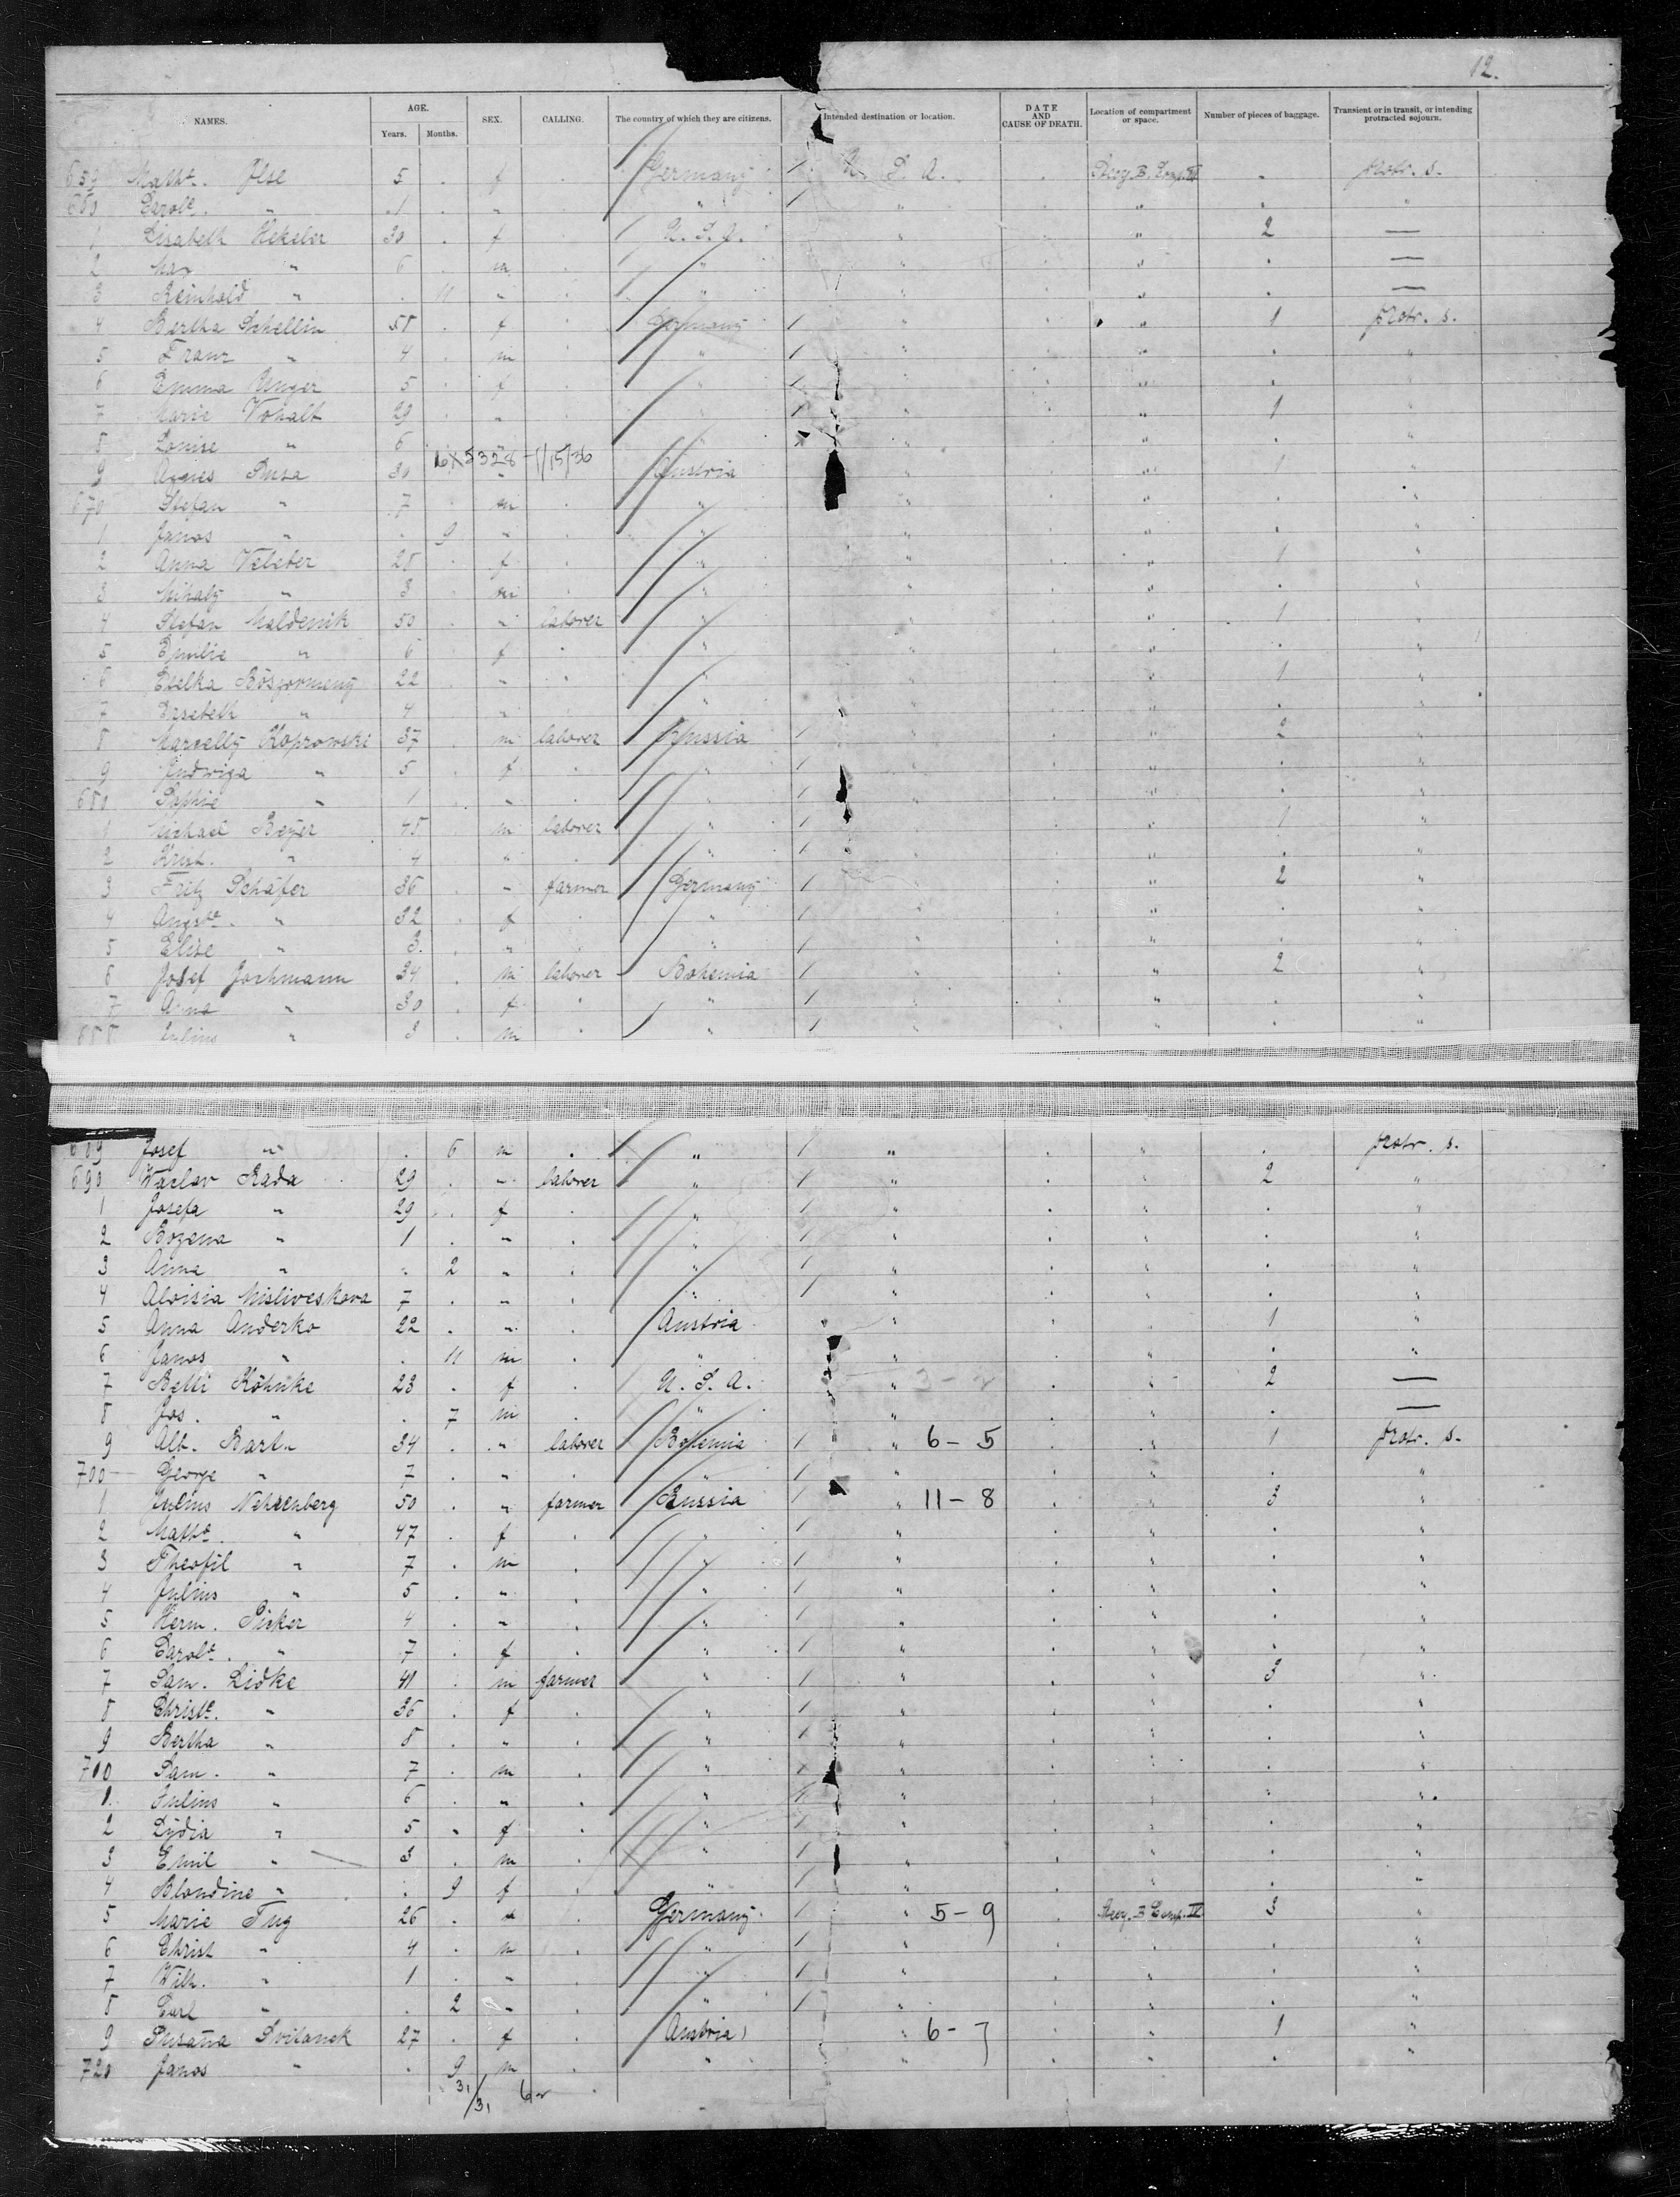 12.
NAMES. AGE. Years. Months. SEX. CALLING. The country of which they are citizens. Intended destination or location. DATE AND CAUSE OF DEATH. Location of compartment or space. Number of pieces of baggage. Transient or in transit, or intending protracted sojourn.
659 Math. Ilse 5 . f . Germany / U. S. A. . . protr. s.
660 Carol. " 1 . " . " / " . " . "
1 Lisabeth Hekeler 30 . f . U. S. A. " . " 2 —
2 Max " 6 . m . " " . " . —
3 Reinhold " . 11 " . " " . " . —
4 Bertha Schellin 58 . f . Germany / " . " 1 protr. s.
5 Franz " 4 . m . " / " . " . "
6 Emma Unger 5 . f . " / " . " . "
7 Marie 29 . " . " / " . " 1 "
8 Louise " 6 . " . " " . " . "
6X5328-1/15/36
9 Agnes 30 . " . Austria " . " 1 "
670 Stefan " 7 . m . " " . " . "
1 Janos " . 9 " . " " . " . "
2 Anna Veleber 28 . f . " " . " 1 "
3 Mihaly " 3 . m . " " . " . "
4 Stefan Maldenik 50 . " laborer " " . " 1 "
5 Emilie " 6 . f . " " . " . "
6 Etelka Böszormeny 22 . " . " " . " 1 "
7 " 4 . " . " " . " . "
8 Marcelly Koprowski 37 . m laborer Russia / " . " 2 "
9 Jadwiga " 5 . f . " / " . " . "
680 Sophie " 1 . " . " / " . " . "
1 Michael Beyer 45 . m laborer " / " . " 1 "
2 Krist. " 4 . " . " / " . " . "
3 Fritz Schäfer 36 . " farmer Germany / " . " 2 "
4 Augste. " 32 . f . " / " . " . "
5 Elise " 3 . " . " / " . " . "
6 Josef Jochmann 34 . m laborer Bohemia / " . " 2 "
7 Anna " 30 . f . " / " . " . "
688 Julius " 3 . m . " / " . " . "
689 Josef " . 6 m . " / " . " . protr. s.
690 Vaclav Rada 29 . " laborer " / " . " 2 "
1 Josefa " 29 . f . " / " . " . "
2 Bozena " 1 . " . " / " . " . "
3 Anna " . 2 " . " / " . " . "
4 Aloisia Misliveskova 7 . " . " / " . " . "
5 Anna Anderko 22 . " . Austria " . " 1 "
6 Janos " . 11 m . " " . " . "
7 Betti Köhnke 23 . f . U. S. A. " 3 - . " 2 —
8 Jos. " . 7 m . " " . " . —
9 Alb. Bart. 34 . " laborer Bohemia / " 6 - 5 . " 1 protr. s.
700 George " 7 . " . " / " . " . "
1 Julius Nehrenberg 50 . " farmer Russia / " 11 - 8 . " 3 "
2 Math. " 47 . f . " / " . " . "
3 Theofil " 7 . m . " / " . " . "
4 Julius " 5 . " . " / " . " . "
5 Herm. Picker 4 . " . " / " . " . "
6 Carol. " 7 . f . " / " . " . "
7 Sam. Lidke 41 . m farmer " / " . " 3 "
8 Christ. " 36 . f . " / " . " . "
9 Bertha " 8 . " . " / " . " . "
710 Sam. " 7 . m . " / " . " . "
1 Julius " 6 . " . " / " . " . "
2 Lydia " 5 . f . " / " . " . "
3 Emil " 3 . m . " / " . " . "
4 Blondine " . 9 f . " / " . " . "
5 Marie Tug 26 . " . Germany / " 5 - 9 . Steeg. B Comp. IV 3 "
6 Christ " 4 . m . " / " . " . "
7 Wilh. " 1 . " . " / " . " . "
8 Carl " . 2 " . " / " . " . "
9 Susana Svitanek 27 . f . Austria " 6 - 7 . " 1 "
720 Janos " . 9 m . " " . " . "
31/31 6